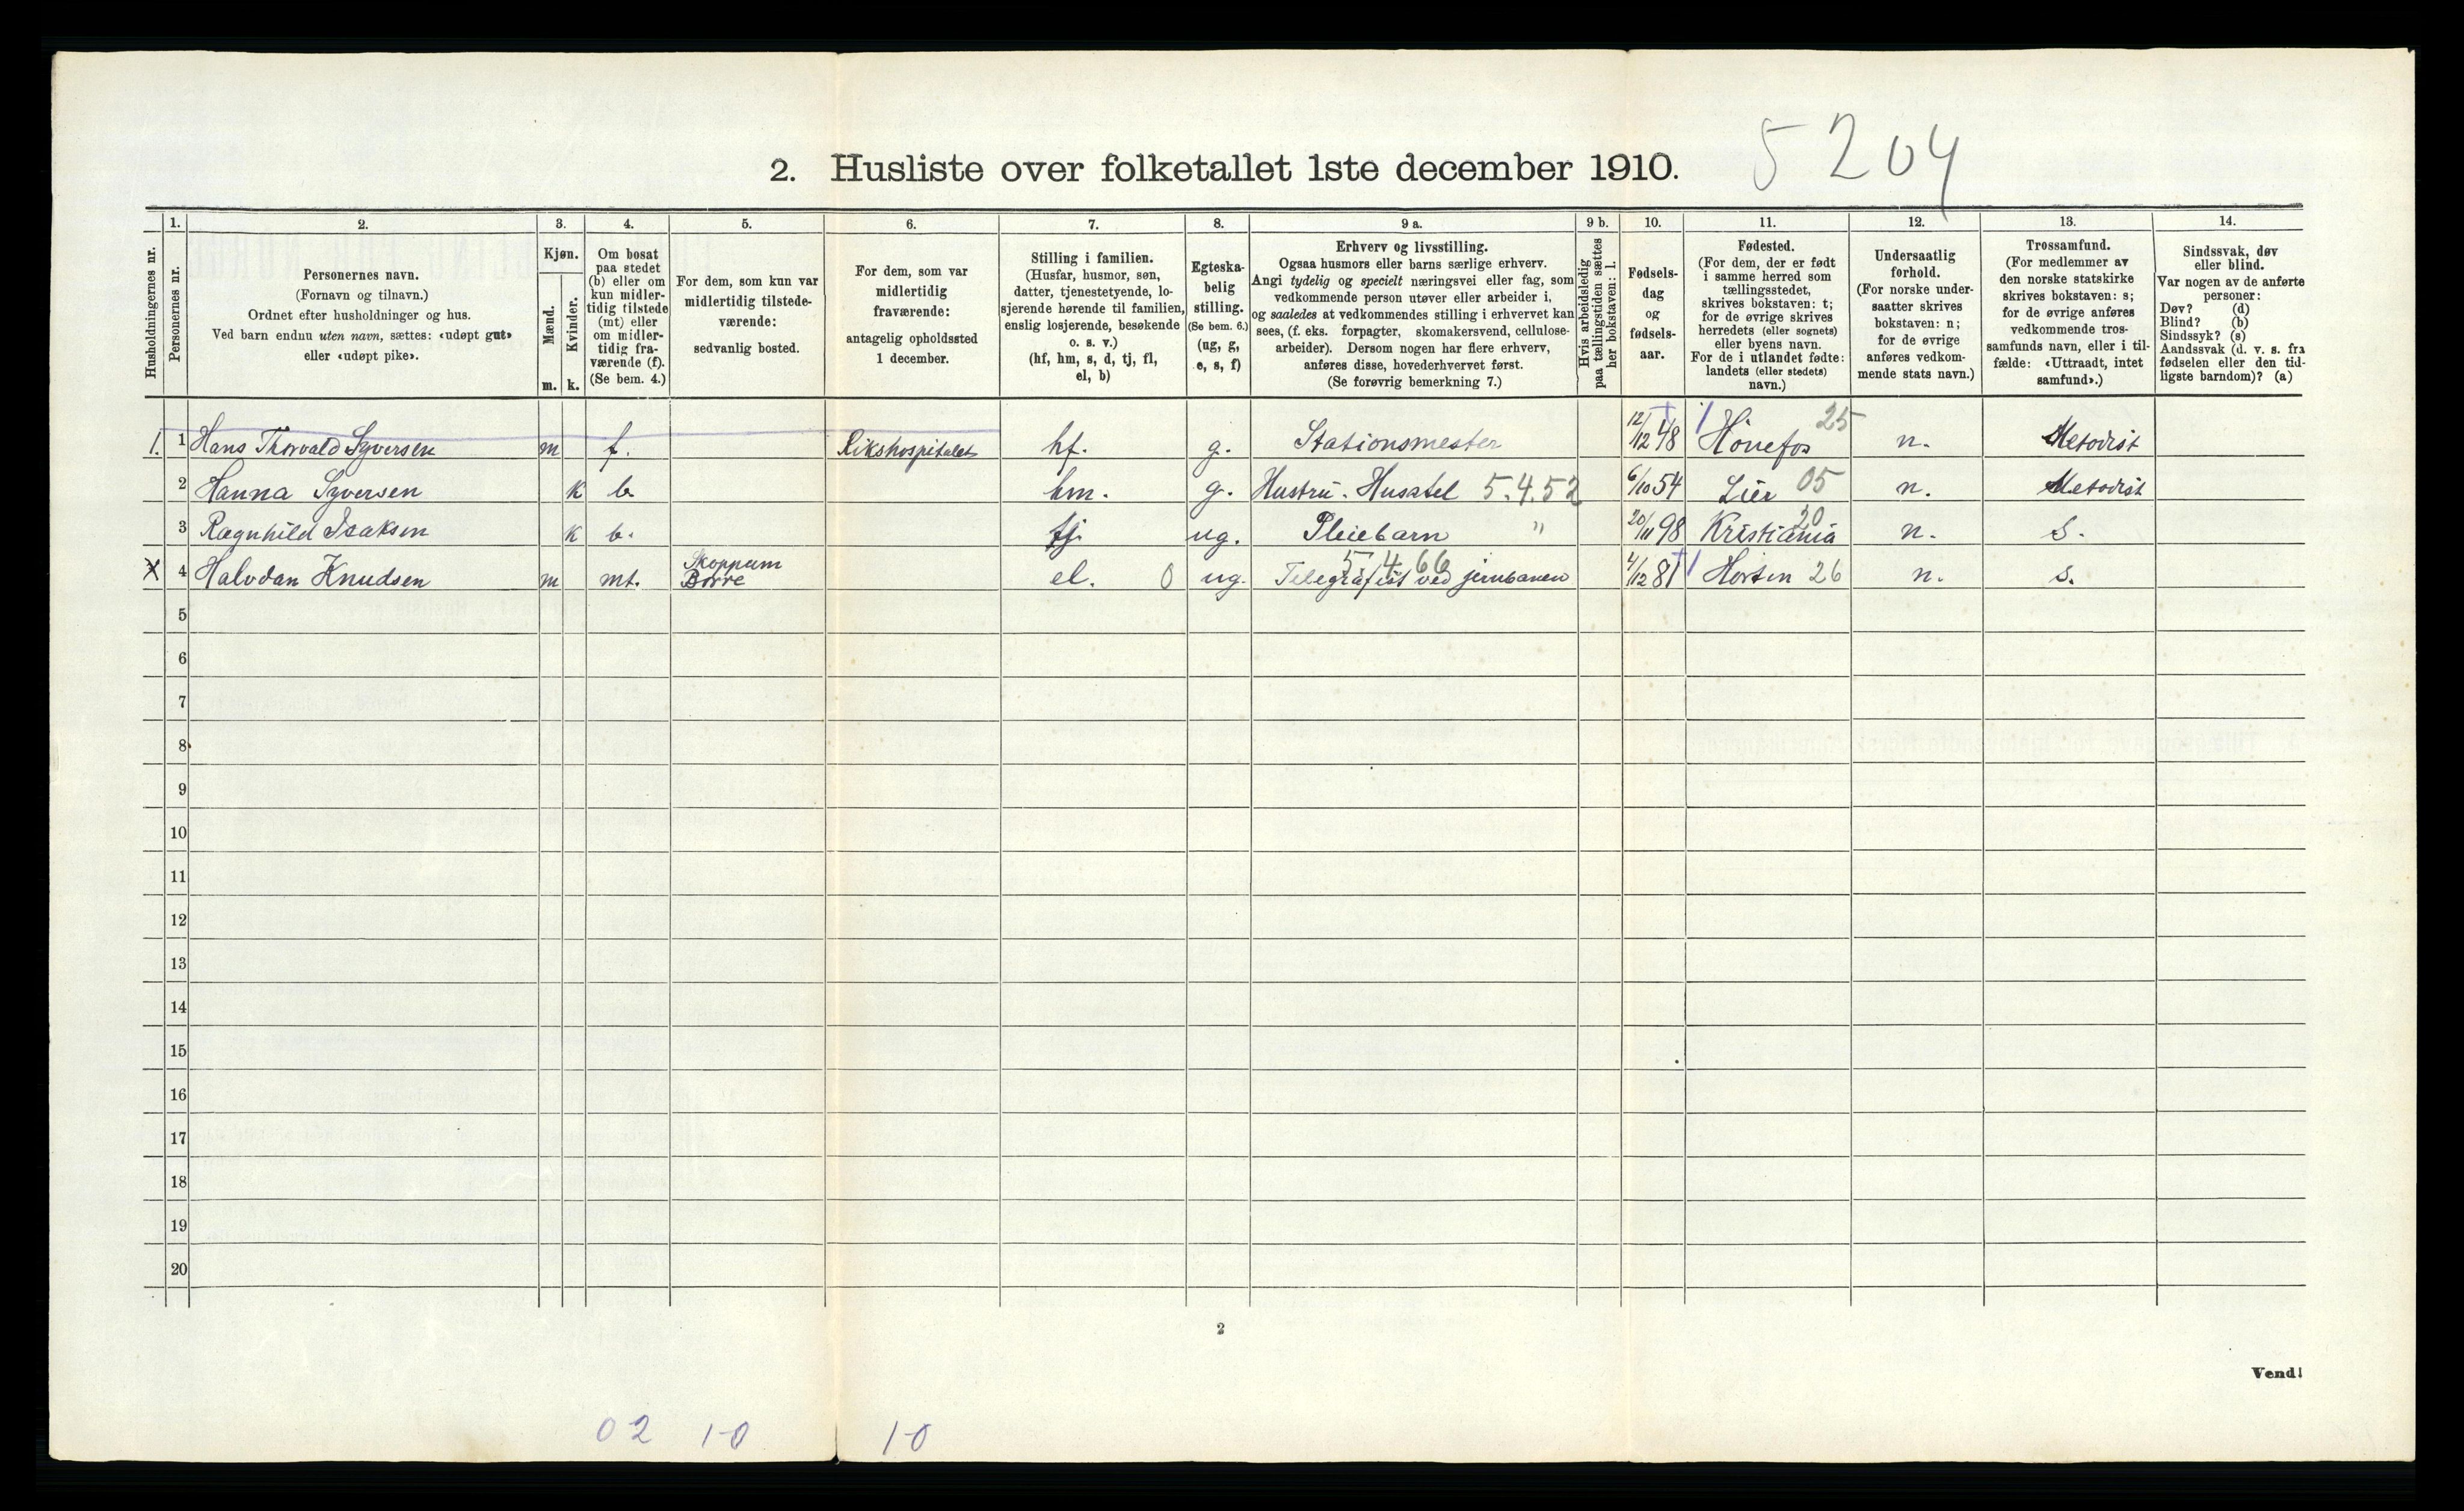 2. Husliste over folketallet 1ste december 1910.
5204
Husholdningernes nr.
1.
Personernes nr.
2.
Personernes navn.
(Fornavn og tilnavn.)
Ordnet efter husholdninger og hus.
Ved barn endnu uten navn, sættes: «udøpt gut»
eller «udøpt pike».
3.
Kjøn.
Mænd.
Kvinder.
m. k.
4.
Om bosat
paa stedet
(b) eller om
kun midler-
tidig tilstede
(mt) eller
om midler-
tidig fra-
værende (f).
(Se bem. 4.)
5.
For dem, som kun var
midlertidig tilstede-
værende:
sedvanlig bosted.
6.
For dem, som var
midlertidig
fraværende:
antagelig opholdssted
1 december.
7.
Stilling i familien.
(Husfar, husmor, søn,
datter, tjenestetyende, lo-
sjerende hørende til familien,
enslig losjerende, besøkende
o. s. v.)
(hf, hm, s, d, tj, fl,
el, b)
8.
Egteska-
belig
stilling.
(Se bem. 6.)
(ug, g,
e, s, f)
9 a.
Erhverv og livsstilling.
Ogsaa husmors eller barns særlige erhverv.
Angi tydelig og specielt næringsvei eller fag, som
vedkommende person utøver eller arbeider i,
og saaledes at vedkommendes stilling i erhvervet kan
sees, (f. eks. forpagter, skomakersvend, cellulose-
arbeider). Dersom nogen har flere erhverv,
anføres disse, hovederhvervet først.
(Se forøvrig bemerkning 7.)
9 b.
Hvis arbeidsledig
paa tællingstiden sættes
her bokstaven: l.
10.
Fødsels-
dag
og
fødsels-
aar.
11.
Fødested.
(For dem, der er født
i samme herred som
tællingsstedet,
skrives bokstaven: t;
for de øvrige skrives
herredets (eller sognets)
eller byens navn.
For de i utlandet fødte:
landets (eller stedets)
navn.)
12.
Undersaatlig
forhold.
(For norske under-
saatter skrives
bokstaven: n;
for de øvrige
anføres vedkom-
mende stats navn.)
13.
Trossamfund.
(For medlemmer av
den norske statskirke
skrives bokstaven: s;
for de øvrige anføres
vedkommende tros-
samfunds navn, eller i til-
fælde: «Uttraadt, intet
samfund».)
14.
Sindssvak, døv
eller blind.
Var nogen av de anførte
personer:
Døv? (d)
Blind? (b)
Sindssyk? (s)
Aandssvak (d. v. s. fra
fødselen eller den tid-
ligste barndom)? (a)
1. 1 Hans Thorvald Syversen m f. Rikshospitalet hf. g. Stationsmester 12/12 48 Hönefos 25 n. Metodist
2 Hanna Syversen k b. hm. g. Hustru. Husstel 5.4.52 6/10 54 Lier 05 n. Metodist
3 Ragnhild Isaksen k b. tj. ug. Pleiebarn " 20/11 98 Kristiania 20 n. S.
X 4 Halvdan Knudsen m mt. Skoppum Borre el. 0 ug. Telegrafist ved jernbanen 5.4.66 4/12 81 Horten 26 n. S.
5
6
7
8
9
10
11
12
13
14
15
16
17
18
19
20
2
Vend!
02 10 10